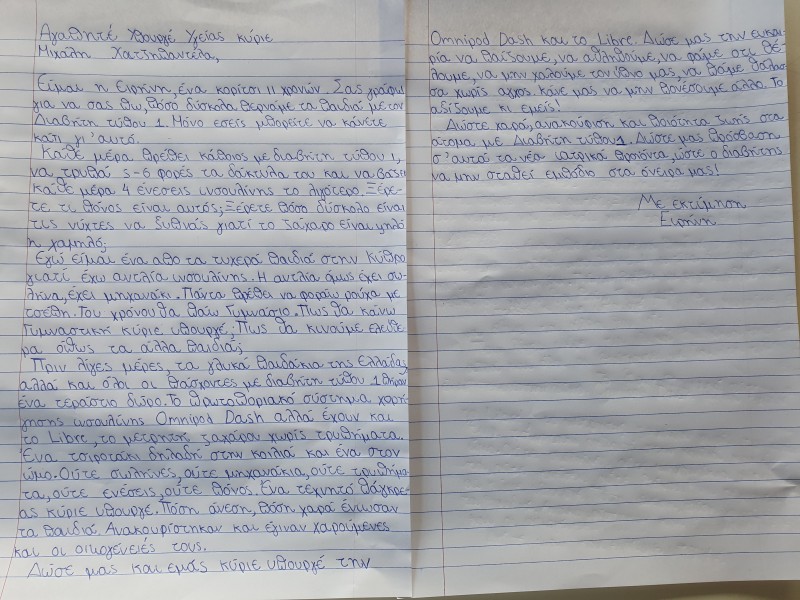 Αγαπητέ Υπουργέ Υγείας κύριε
Μιχάλη Χατζηπαντέλα,
Είμαι η Ειρήνη, ένα κορίτσι 11 χρονών. Σας γράφω
για να σας πω, πόσο δύσκολα περνάμε τα παιδιά με τον
Διαβήτη τύπου 1. Μόνο εσείς μπορείτε να κάνετε
κάτι γι' αυτό.
Κάθε μέρα πρέπει κάποιος με διαβήτη τύπου 1,
να τρυπά 5-6 φορές τα δάκτυλα του και να βάζει
κάθε μέρα 4 ενέσεις ινσουλίνης το λιγότερο. Ξέρε-
τε τι πόνος είναι αυτός; Ξέρετε πόσο δύσκολο είναι
τις νύχτες να ξυπνάς γιατί το ζάχαρο είναι ψηλό
ή χαμηλό;
Εγώ είμαι ένα από τα τυχερά παιδιά στην Κύπρο
γιατί έχω αντλία ινσουλίνης. Η αντλία όμως έχει σω-
λήνα, έχει μηχανάκι. Πάντα πρέπει να φοράω ρούχα με
τσέπη. Του χρόνου θα πάω Γυμνάσιο. Πως θα κάνω
Γυμναστική κύριε υπουργέ; Πως θα κινούμε ελεύθε-
ρα όπως τα άλλα παιδιά;
Πριν λίγες μέρες, τα γλυκά παιδάκια της Ελλάδας
αλλά και όλοι οι πάσχοντες με διαβήτη τύπου 1 πήραν
ένα τεράστιο δώρο. Το πρωτοποριακό σύστημα χορή-
γησης ινσουλίνης Omnipod Dash αλλά έχουν και
το Libre, το μετρητή ζαχάρου χωρίς τρυπήματα.
Ένα τσιροτάκι δηλαδή στην κοιλιά και ένα στον
ώμο. Ούτε σωλήνες, ούτε μηχανάκια, ούτε τρυπήμα-
τα, ούτε ενέσεις, ούτε πόνος. Ένα τεχνητό πάγκρε-
ας κύριε υπουργέ. Πόση άνεση, πόση χαρά ένιωσαν
τα παιδιά. Ανακουρίστηκαν και έγιναν χαρούμενες
και οι οικογένειές τους.
Δώσε μας και εμάς κύριε υπουργέ την
Omnipod Dash και το Libre. Δώσε μας την ευκαι-
ρία να παίξουμε, να αθληθούμε, να φάμε ότι θέ-
λουμε, να μην χαλούμε τον ύπνο μας, να πάμε θάλασ-
σα χωρίς άγχος. Κάνε μας να μην πονέσουμε άλλο. Το
αξίζουμε κι εμείς!
Δώστε χαρά, ανακούφιση και ποιότητα ζωής στα
άτομα με Διαβήτη τύπου 1. Δώστε μας πρόσβαση
σ' αυτά τα νέα ιατρικά προϊόντα, ώστε ο διαβήτης
να μην σταθεί εμπόδιο στα όνειρα μας!
Με εκτίμηση
Ειρήνη